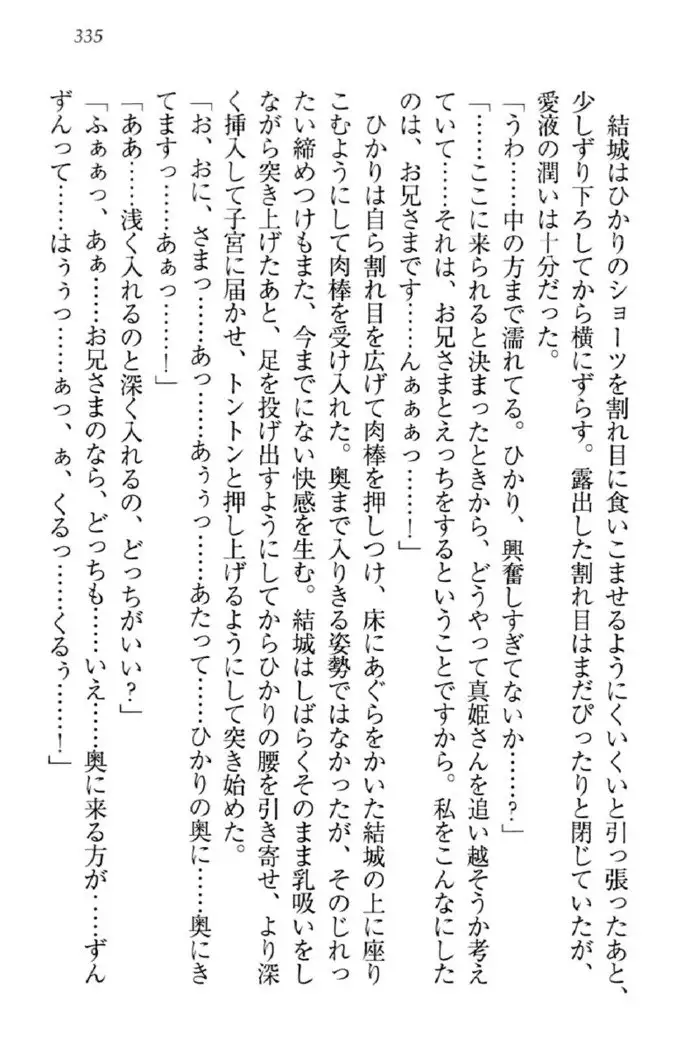 335
結城はひかりのショーツを割れ目に食いこませるようにくいくいと引っ張ったあと、
少しずり下ろしてから横にずらす。露出した割れ目はまだぴったりと閉じていたが、
愛液の潤いは十分だった。
「うわ……中の方まで濡れてる。ひかり、興奮しすぎてないか……？」
「……ここに来られると決まったときから、どうやって真姫さんを追い越そうか考え
ていて……それは、お兄さまとえっちをするということですから。私をこんなにした
のは、お兄さまです……んぁぁぁっ……！」
ひかりは自ら割れ目を広げて肉棒を押しつけ、床にあぐらをかいた結城の上に座り
こむようにして肉棒を受け入れた。奥まで入りきる姿勢ではなかったが、そのじれっ
たい締めつけもまた、今までにない快感を生む。結城はしばらくそのまま乳吸いをし
ながら突き上げたあと、足を投げ出すようにしてからひかりの腰を引き寄せ、より深
く挿入して子宮に届かせ、トントンと押し上げるようにして突き始めた。
「お、おに、さまっ……あっ……あぅぅっ……あたって……ひかりの奥に……奥にき
てますっ……あぁっ……！」
「ああ……浅く入れるのと深く入れるの、どっちがいい？」
「ふぁぁっ、あぁ……お兄さまのなら、どっちも……いえ……奥に来る方が……ずん
ずんって……はぅぅっ……ぁっ、ぁ、くるっ……くるぅ……！」